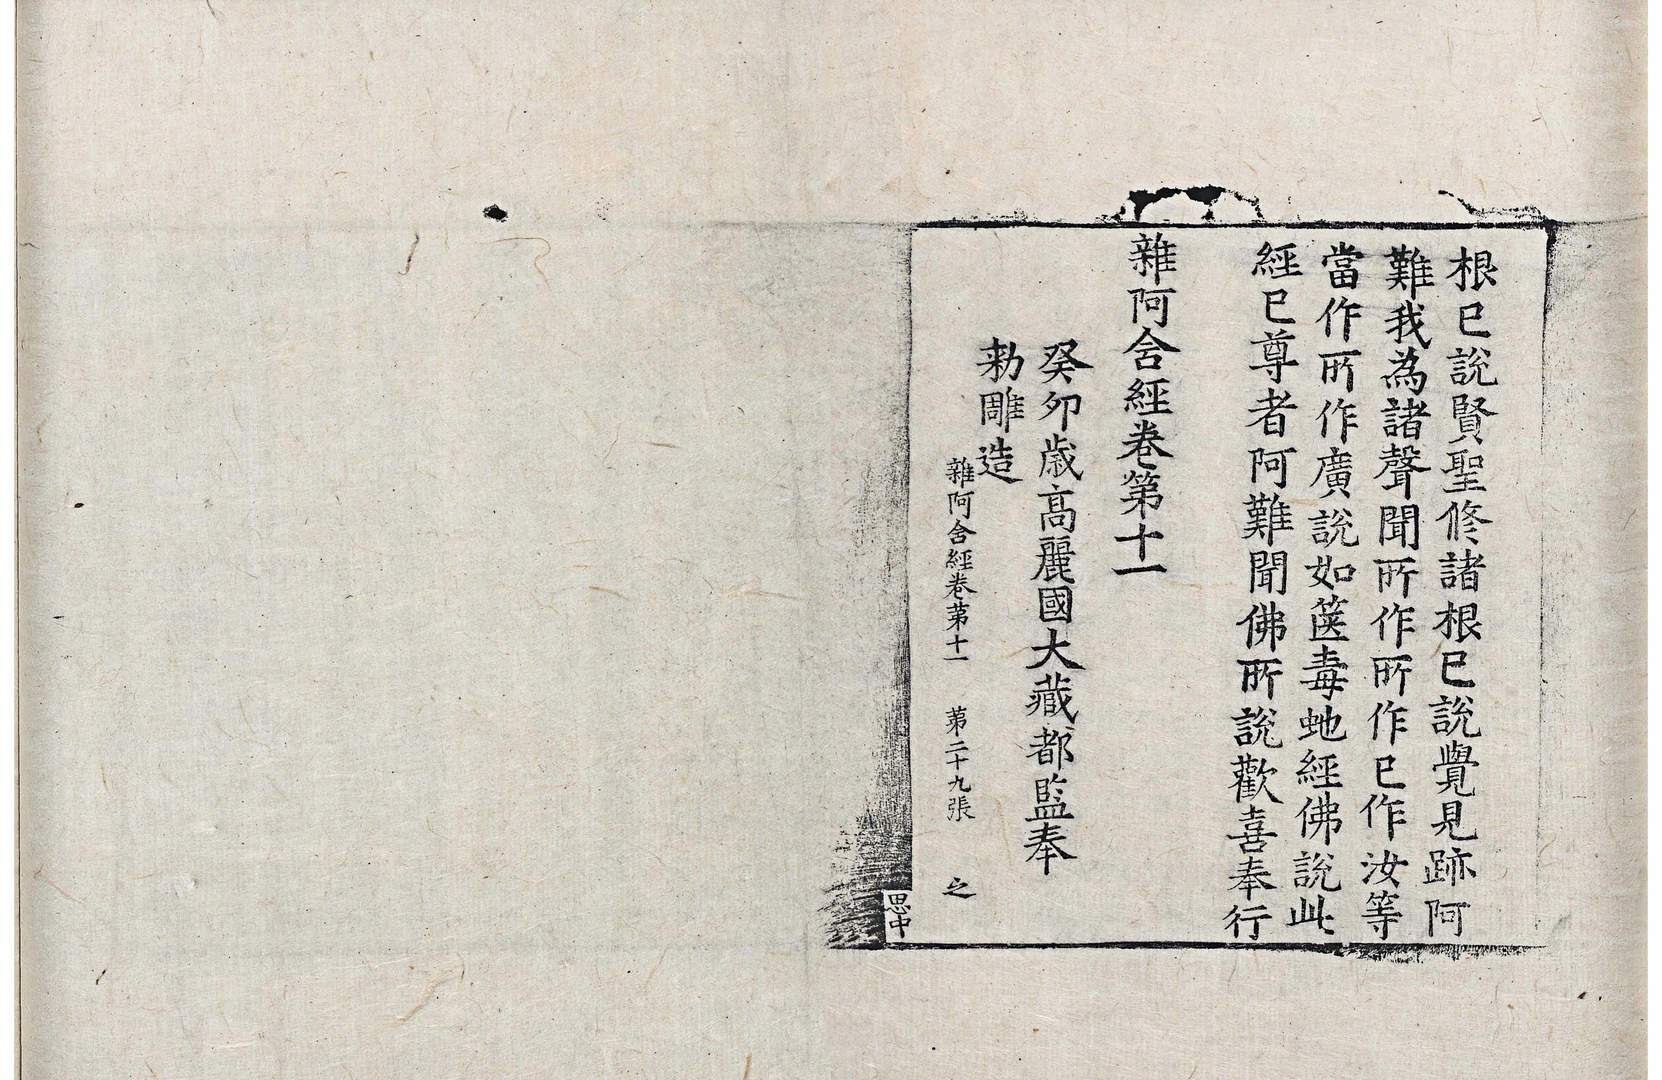 根已說賢聖修諸根已說覺見跡阿
難我為諸聲聞所作所作已作汝等
當作所作廣說如篋毒虵經佛說此
經已尊者阿難聞佛所說歡喜奉行
雜阿含經卷第十一
癸卯歲高麗國大藏都監奉
勑雕造
雜阿含經卷第十一 第二十九張 之
思中